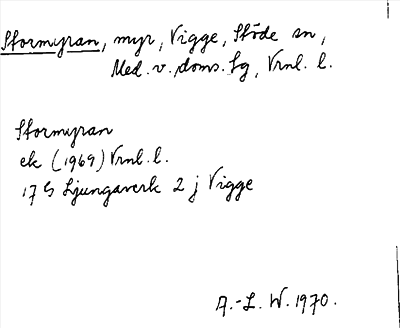 Stormyran, myr, Vigge, Stöde sn,
Med. v. doms. lg, Vrnl. l.
Stormyran
ek (1969) Vrnl. l.
17 G Ljungaverk 2 j Vigge
A.-L. W. 1970.